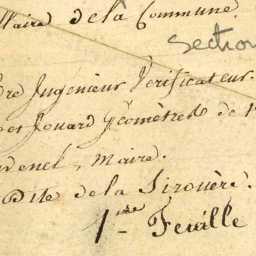 llaire de la Commune
Section
Ingenieur Vérificateur.
Jouard géomètres de
Maire.
Dite de la Sirouère.
1re Feuille